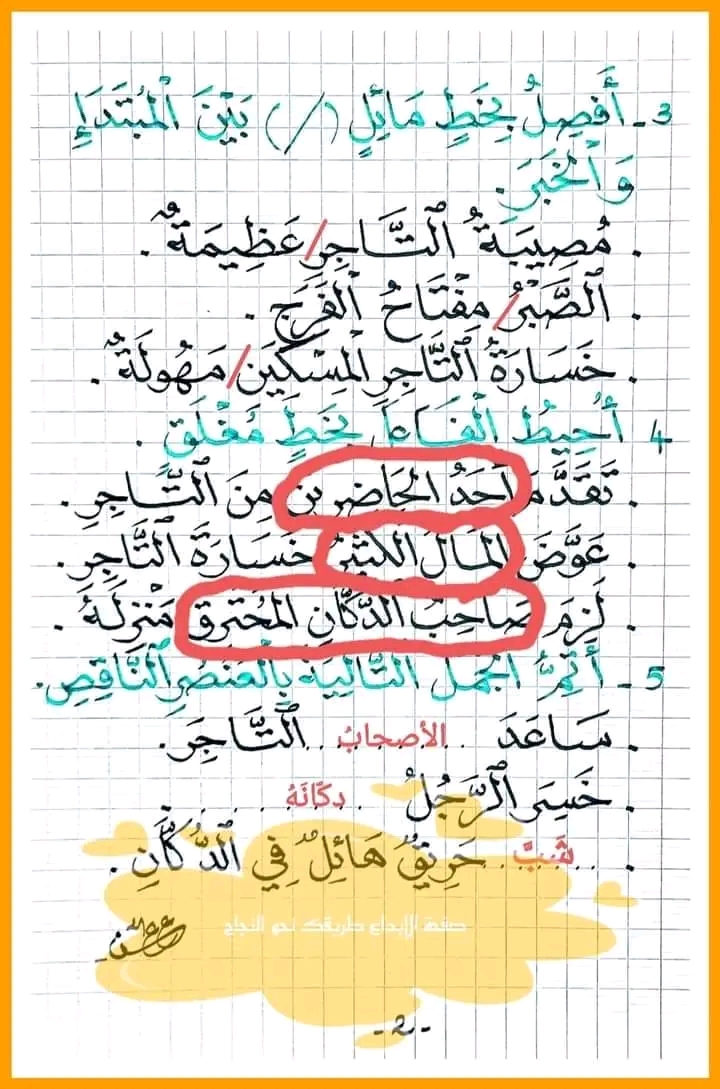 3 ـ أَفْصِلُ بِخَطٍّ مَائِلٍ (/) بَيْنَ الْمُبْتَدَإِ
وَالْخَبَرِ.
. مُصِيبَةُ التَّاجِرِ/عَظِيمَةٌ.
. الصَّبْرُ/مِفْتَاحُ الْفَرَجِ.
. خَسَارَةُ التَّاجِرِ الْمِسْكِينِ/مَهُولَةٌ.
4 أُحِيطُ الْفَاعِلَ بِخَطٍّ مُغْلَقٍ.
. تَقَدَّمَ أَحَدُ الْحَاضِرِينَ مِنَ التَّاجِرِ.
. عَوَّضَ الْمَالَ خَسَارَةَ التَّاجِرِ.
. لَزِمَ صَاحِبُ الدُّكَّانِ الْمُحْتَرِقِ مَنْزِلَهُ.
5 ـ أُتِمُّ الْجُمَلَ التَّالِيَةَ بِالْعُنْصُرِ النَّاقِصِ.
. سَاعَدَ ..الأصحابُ.. التَّاجِرَ.
. خَسِرَ الرَّجُلُ ..دكّانَهُ......
. ...شَبَّ.. حَرِيقٌ هَائِلٌ فِي الدُّكَّانِ.
صفحة الإبداع طريقك نحو النجاح
- 2 -